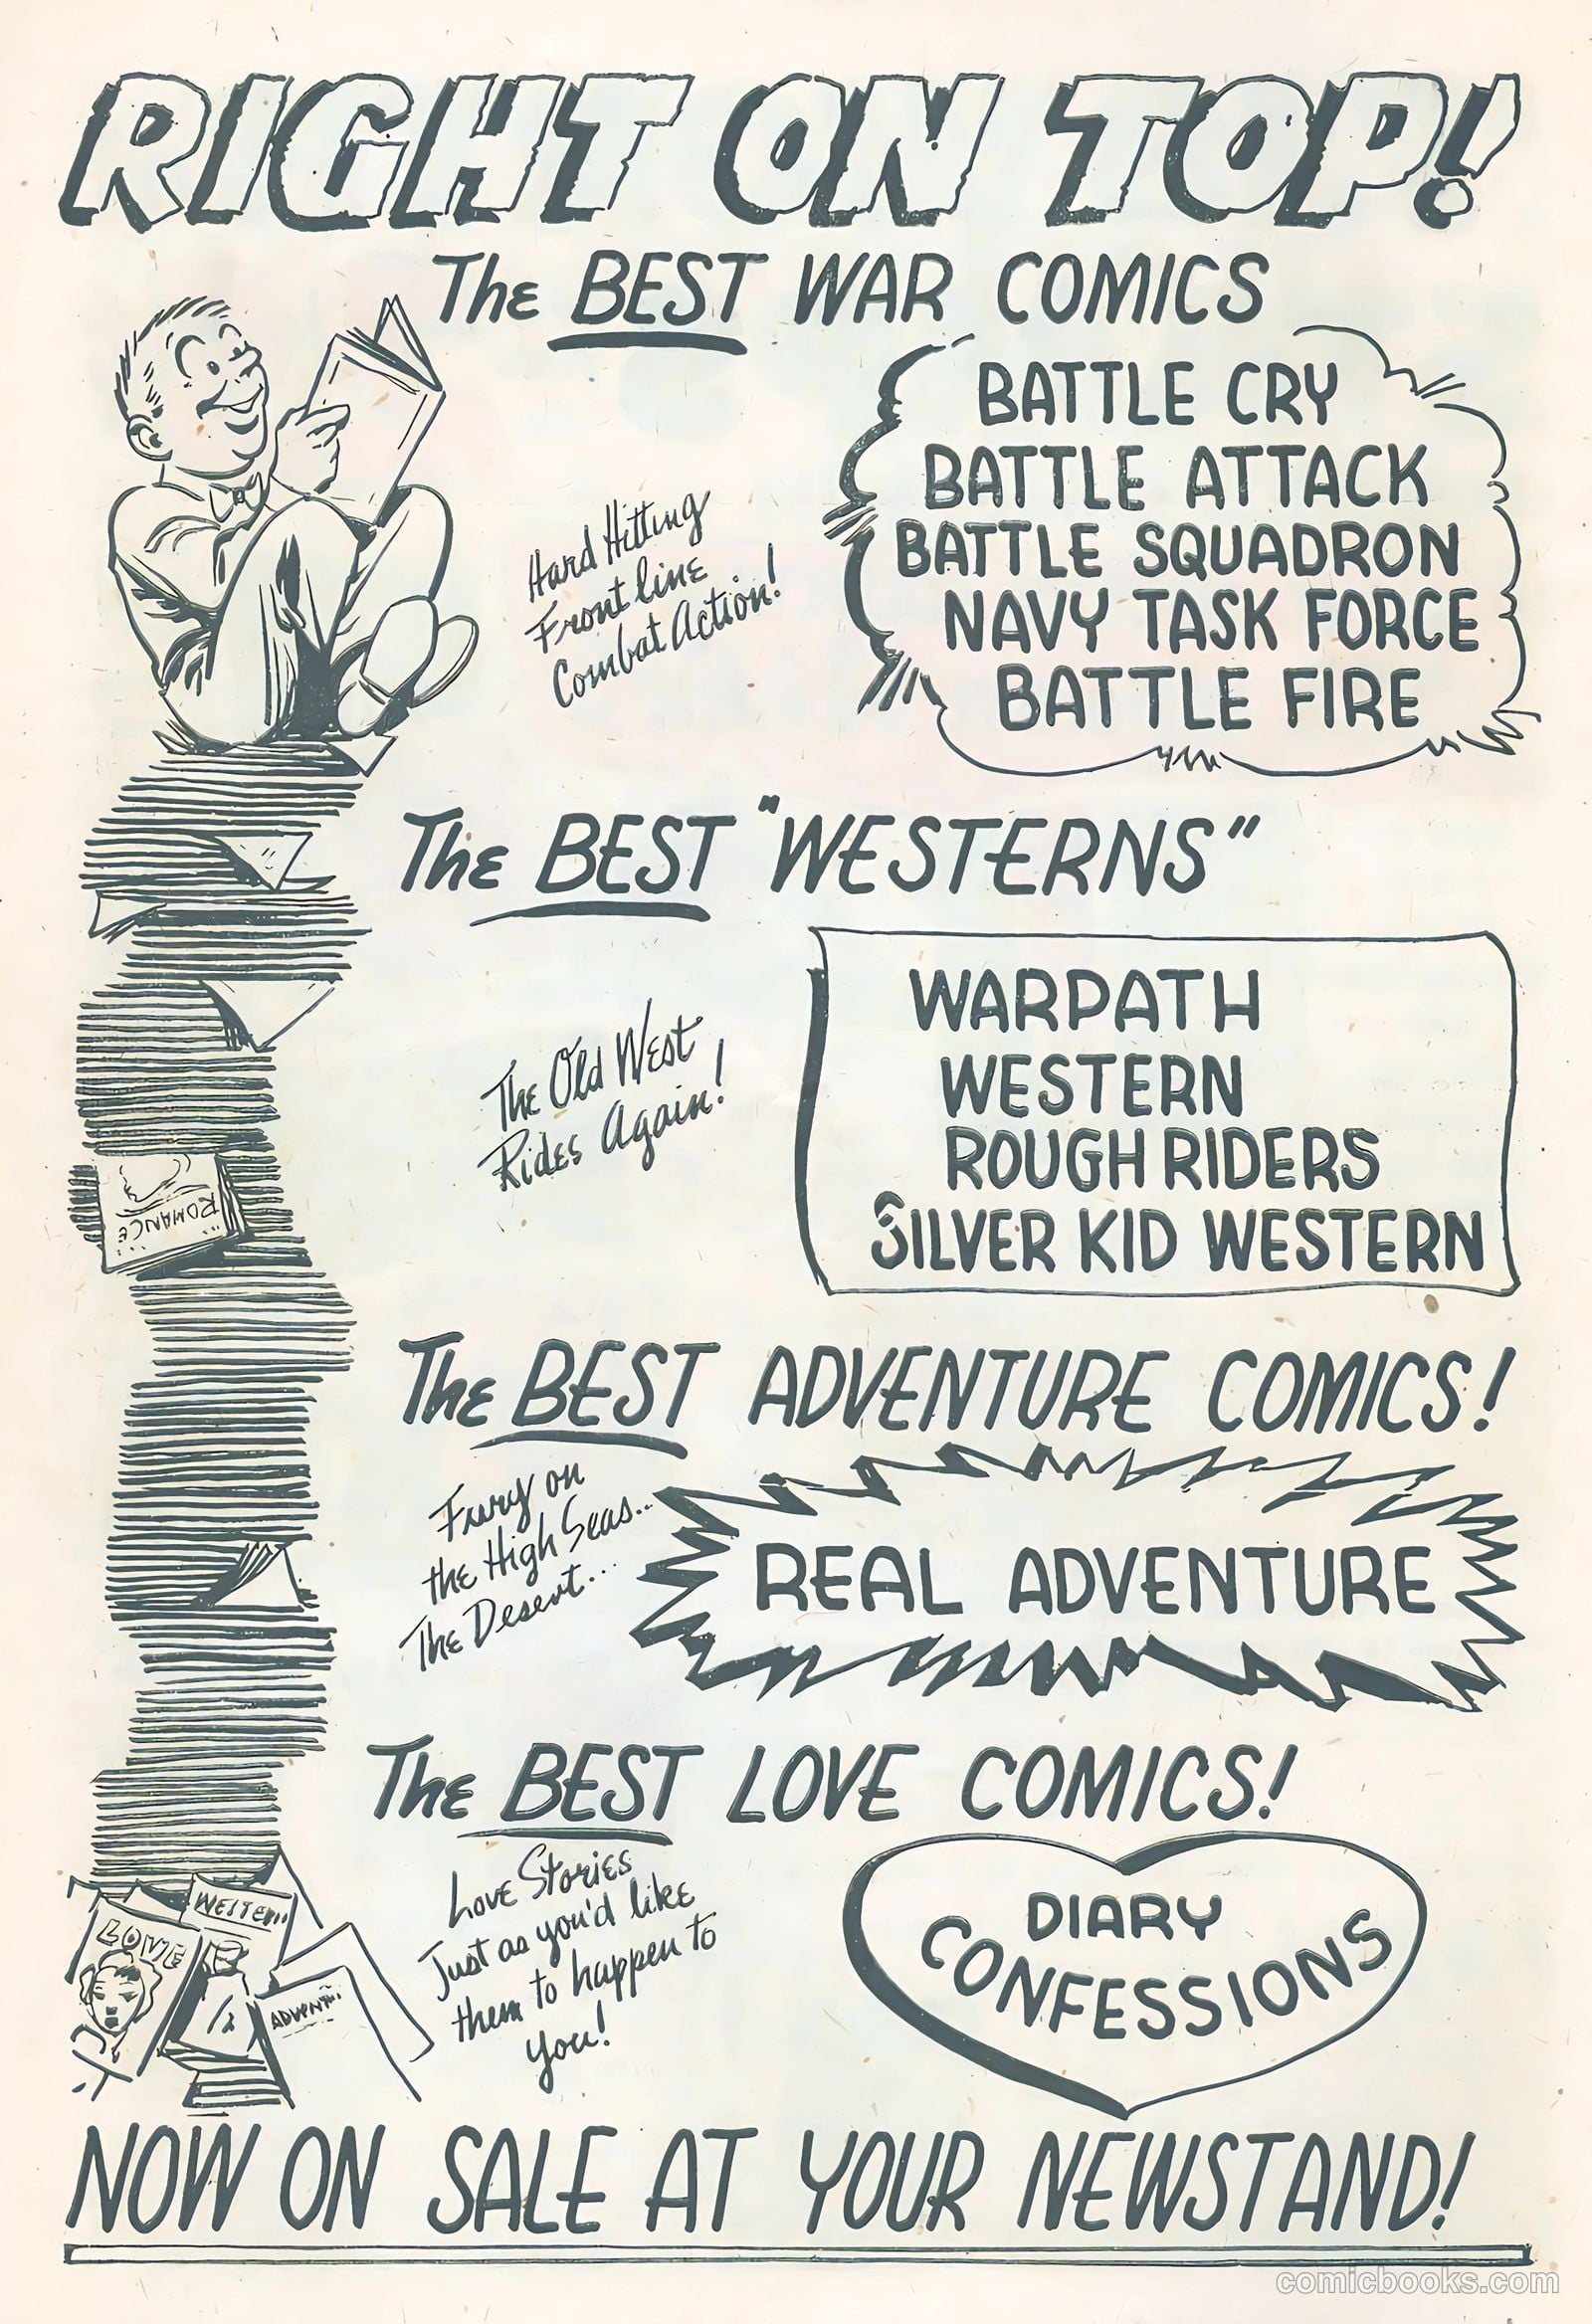 RIGHT ON TOP!
The BEST WAR COMICS
Hard Hitting
Front line
Combat Action!
BATTLE CRY
BATTLE ATTACK
BATTLE SQUADRON
NAVY TASK FORCE
BATTLE FIRE
The BEST "WESTERNS"
The Old West
Rides Again!
WARPATH
WESTERN
ROUGH RIDERS
SILVER KID WESTERN
ROMANCE
The BEST ADVENTURE COMICS!
Fury on
the High Seas...
The Desert...
REAL ADVENTURE
The BEST LOVE COMICS!
Love Stories
Just as you'd like
them to happen to
you!
DIARY
CONFESSIONS
WESTERN
LOVE
ADVENT..
NOW ON SALE AT YOUR NEWSTAND!
comicbooks.com